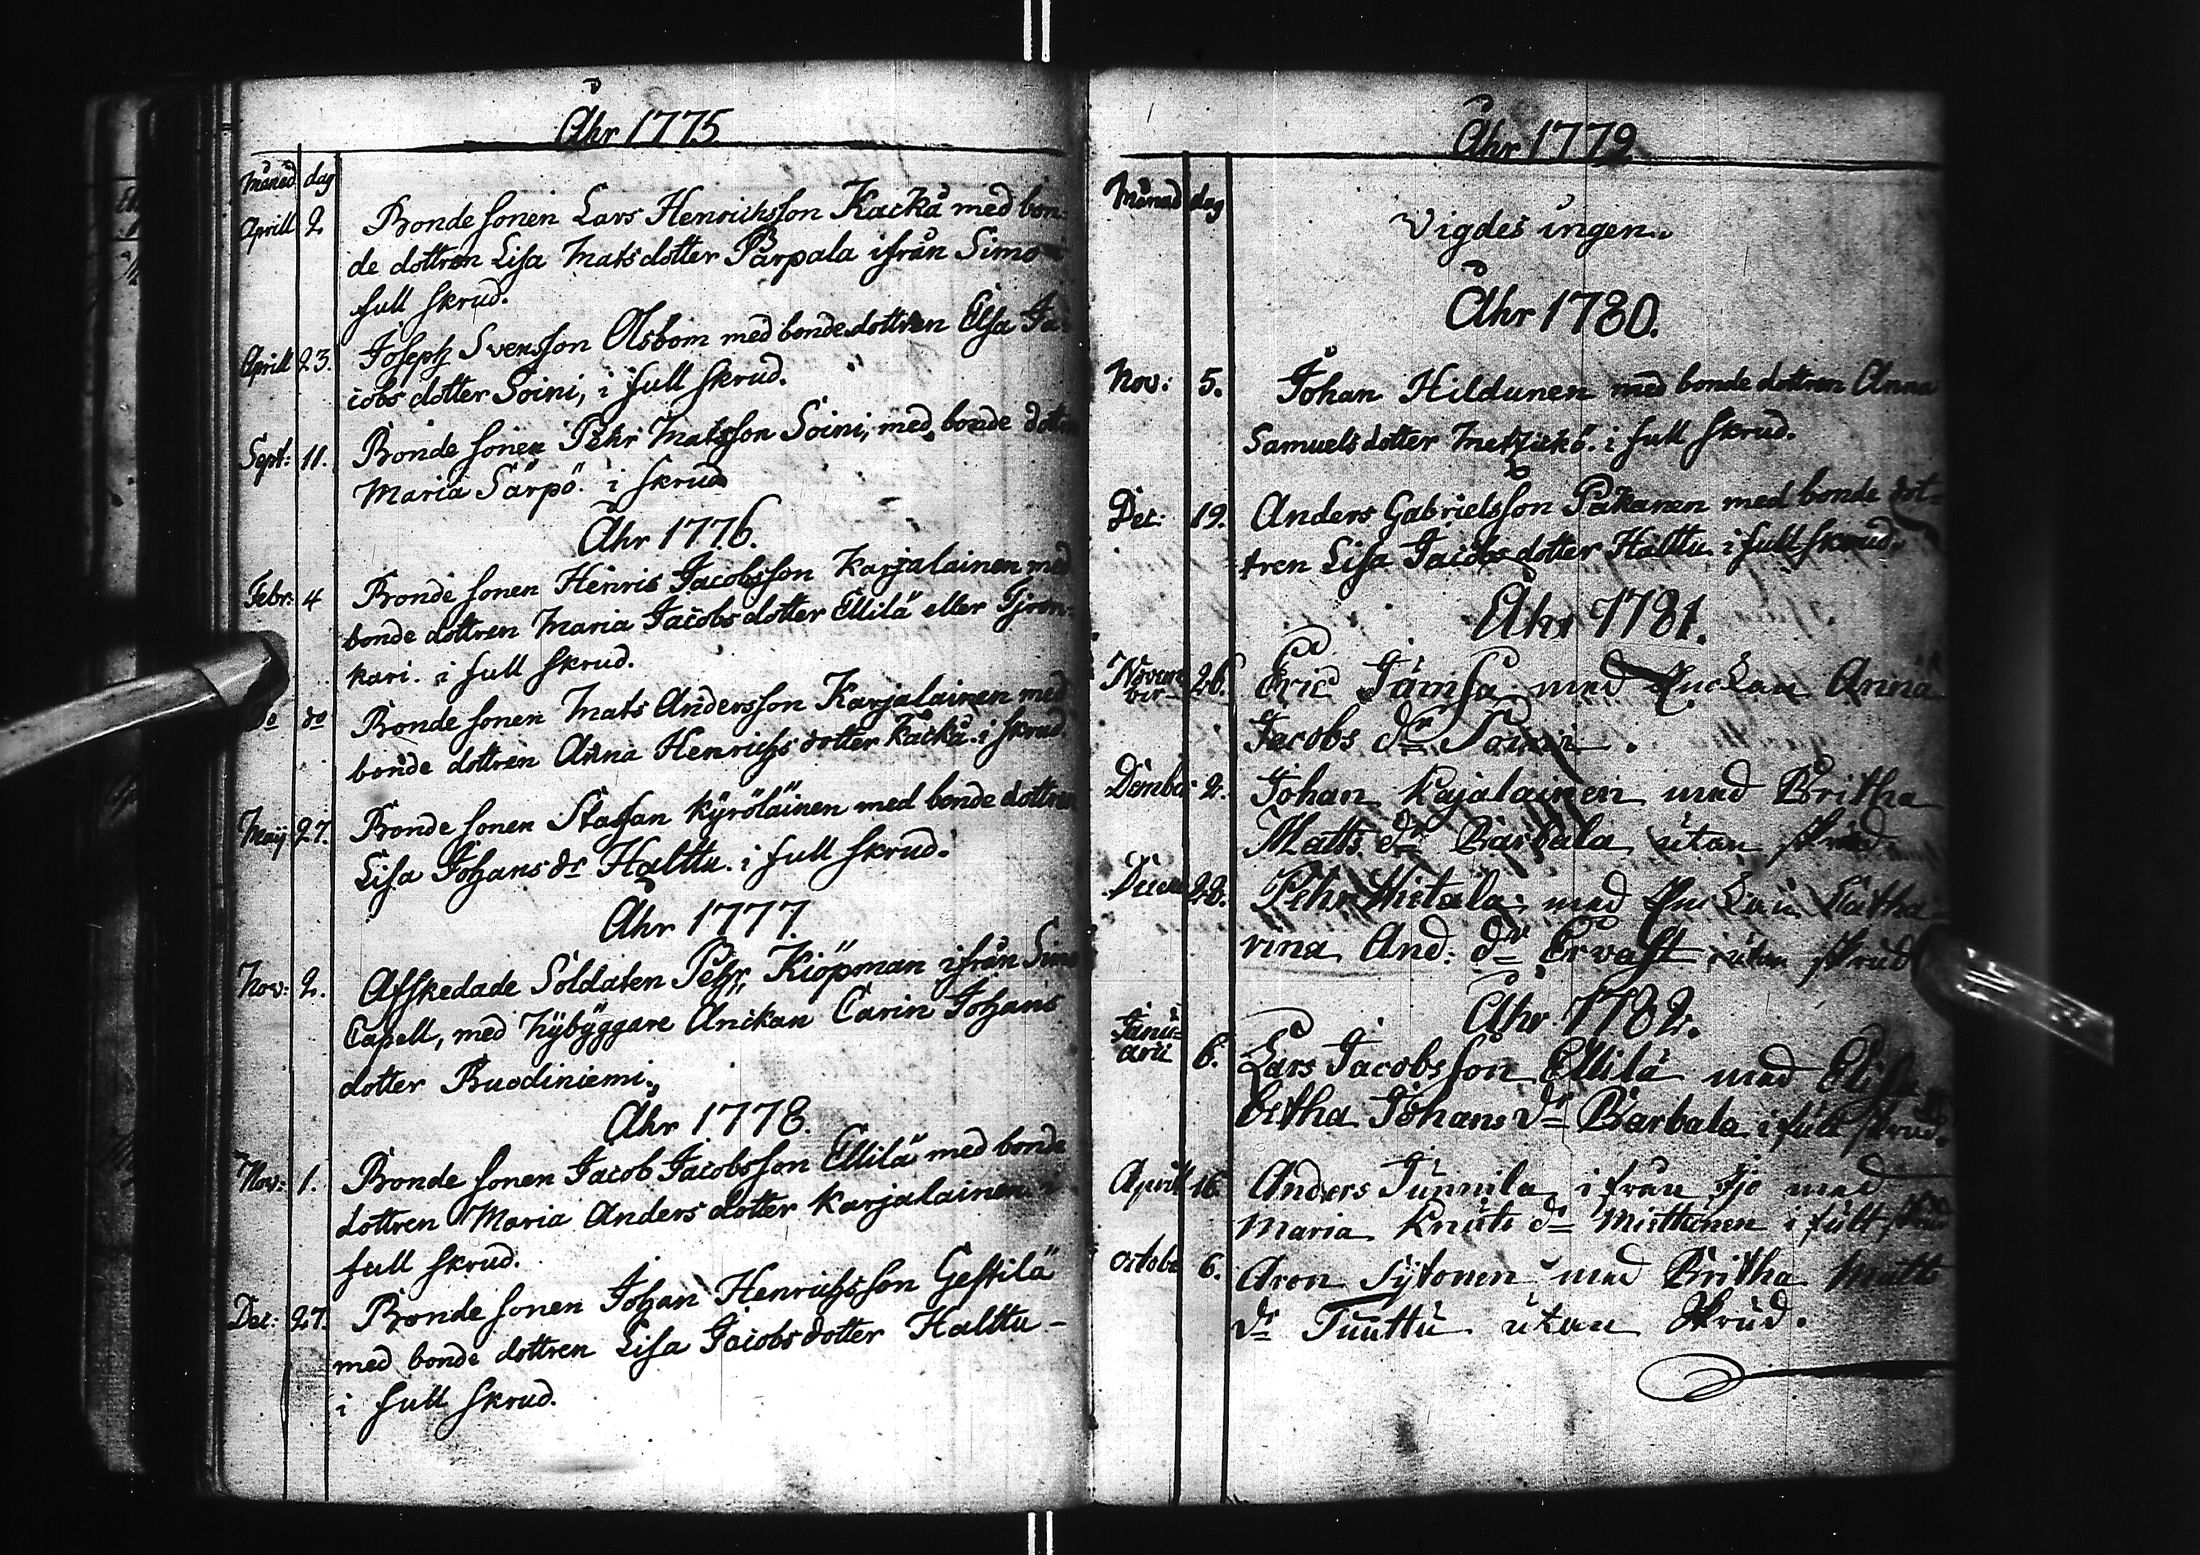 Åhr 1775.
Månad dag
Aprill 2 Bonde sonen Lars Henrichsson Kackå med bon-
de dottren Lisa Matsdotter Parpala ifrån Simo i
full skrud.
Aprill 23. Joseph Svensson Olsbom med bonde dottren Elsa Ja-
cobs dotter Soini, i full skrud.
Sept: 11. Bonde sonen Pehr Matsson Soini, med bonde dottren
Maria Särpö. i skrud
Åhr 1776.
Febr: 4 Bonde sonen Henric Jacobsson Karjalainen med
bonde dottren Maria Jacobs dotter Ellilä eller Tjron-
kari. i full skrud.
De do Bonde sonen Mats Andersson Karjalainen med
bonde dottren Anna Henrichs dotter Kackå i skrud.
Maij 27. Bonde sonen Staffan Kyröläinen med bonde dottren
Lisa Johans dr Halttu. i full skrud.
Åhr 1777.
Nov: 2. Afskedade Soldaten Pehr Kiöpman ifrån Simo
Capell, med Nybyggare Änckan Carin Johans
dotter Buodiniemi.
Åhr 1778.
Nov: 1. Bonde sonen Jacob Jacobsson Ellilä med bonde
dottren Maria Anders dotter Karjalainen i
full skrud.
Dec: 27. Bonde sonen Johan Henrichsson Gestilä
med bonde dottren Lisa Jacobs dotter Halttu -
i full skrud.
Åhr 1779
Månad dag
Vigdes ingen.
Åhr 1780.
Nov: 5. Johan Hildunen med bonde dottren Anna
Samuels dotter i full skrud.
Dec: 19. Anders Gabrielsson Pakanen med bonde dot-
tren Lisa Jacobs dotter Halttu i full skrud.
Åhr 1781.
Novem
ber 26. Eric Jämsa med Enckan Anna
Jacobs dr
2. Johan Kajalainen med Britha
Matts dr Barbala utan skrud.
Decem 22. Pehr Hietala med Enckan Catha-
rina And: dr Ervast utan skrud
Åhr 1782.
Janu-
arii 6. Lars Jacobsson Ellilä med Elisa
betha Johans dr Barbala i full skrud.
Aprill 16. Anders Junnila ifrån Ijo med
Maria Knuts dr Miettunen i full skrud
Octobr 6. Aron Sytonen med Britha Matts
dr Tuuttu utan Skrud.